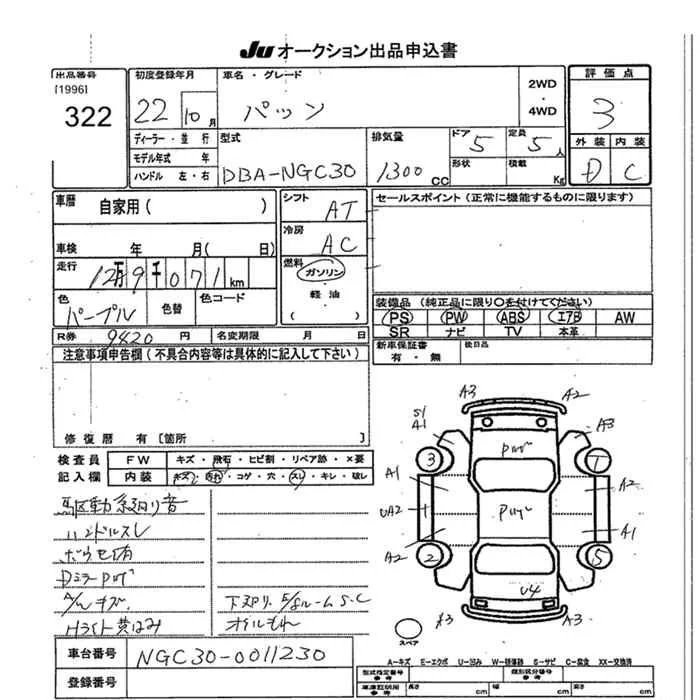 JU オークション出品申込書
出品番号
[1996]
322
初度登録年月
22 10 月
車名・グレード
パッソ
2WD
・
4WD
評価点
3
外装 内装
D C
ディーラー・並行
モデル年式 年
ハンドル 左・右
型式
DBA-NGC30
排気量
1300 CC
ドア 5
形状
定員 5 人
積載 Kg
車暦
自家用( )
シフト
AT
冷房
AC
セールスポイント(正常に機能するものに限ります)
車検 年 月( 日)
走行
12万9千071km
燃料
ガソリン
・
軽油
( )
色
パープル
色替
色コード
装備品(純正品に限り○を付けてください)
PS PW ABS エアB AW
SR ナビ TV 本革
R券 9420 円
名変期限 月 日
新車保証書
有・無
後日品
注意事項申告欄(不具合内容等は具体的に記入して下さい)
修復暦 有[箇所 ]
検査員
記入欄
FW キズ・飛石・ヒビ割・リペア跡・×要
内装 キズ・汚れ・コゲ・穴・スレ・キレ・破レ
駆動系廻り音
ハンドルスレ
Dミラーpwg
A/Wキズ
Hライト黄ばみ
下廻り E/gルームS・C
オイルもれ
A3 A2
S1
A1
A3
pwg
3 1
A1 A2
UA2 pwg
A2 A1
2 5
U4
A3 A3
スペア
車台番号
NGC30-0011230
登録番号
A-キズ E-エクボ U-凹み W-補修跡 S-サビ C-腐食 XX-交換済
型式指定番号
類別区分番号
車庫証明用
参考
長さ cm
幅 cm
高さ cm